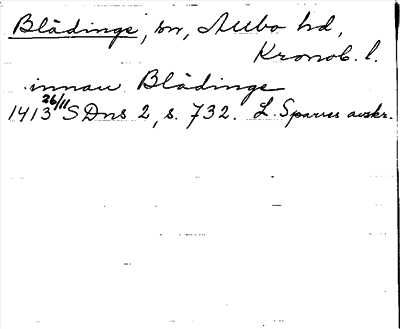 Blädinge, sn, Allbo hd,
Kronob. l.
innan Blädinge
1413 26/11 SDns 2, s. 732. L. Sparres avskr.